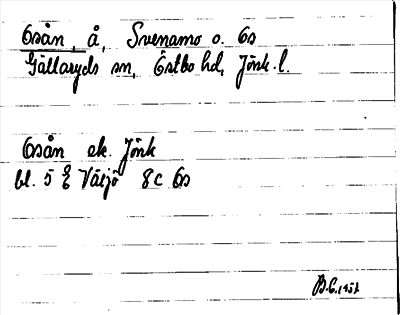 Osån, å, Svenamo o. Ös
Gällaryds sn, Östbo hd, Jönk. l.
Osån ek. Jönk
bl. 5 Växjö 8c Ös